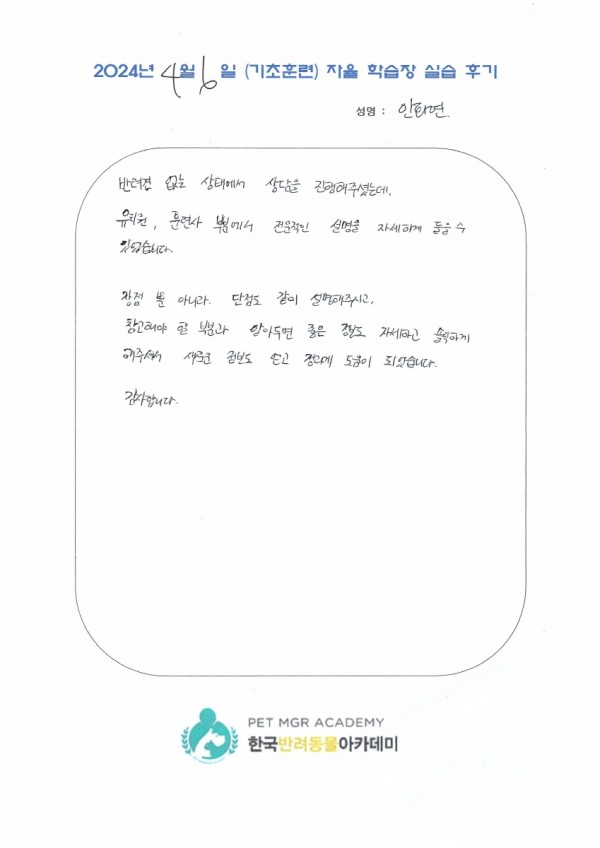 2024년 4월 6일 (기초훈련) 자율 학습장 실습 후기
성명 : 안화연
반려견 없는 상태에서 상담을 진행해주셨는데,
유치원, 훈련사 부분에서 전문적인 설명을 자세하게 들을 수
있었습니다.
장점 뿐 아니라. 단점도 같이 설명해주시고,
참고해야 할 부분과 알아두면 좋은 정보도 자세하고 솔직하게
해주셔서 새로운 정보도 얻고 정리에 도움이 되었습니다.
감사합니다.
PET MGR ACADEMY
한국반려동물아카데미